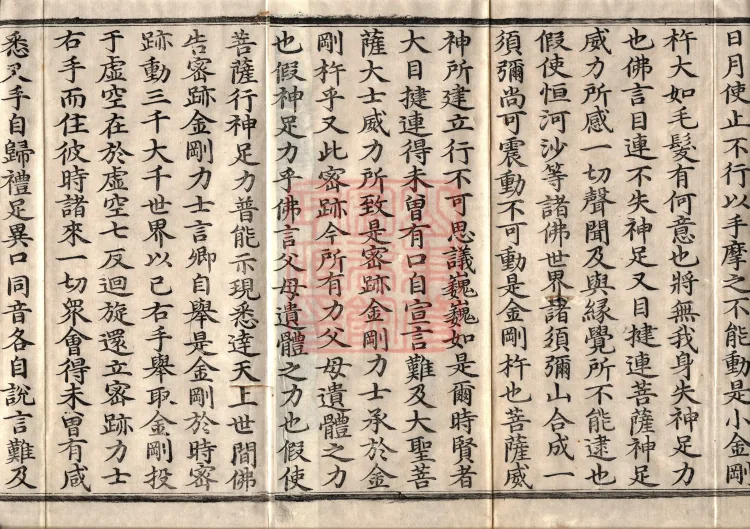 日月使止不行以手摩之不能動是小金剛
杵大如毛髮有何意也將無我身失神足力
也佛言目連不失神足又目揵連菩薩神足
威力所感一切聲聞及與緣覺所不能逮也
假使恒河沙等諸佛世界諸須彌山合成一
須彌尚可震動不可動是金剛杵也菩薩威
神所建立行不可思議巍巍如是爾時賢者
大目揵連得未曾有口自宣言難及大聖菩
薩大士威力所致是密跡金剛力士承於金
剛杵乎又此密跡今所有力父母遺體之力
也假神足力乎佛言父母遺體之力也假使
菩薩行神足力普能示現悉達天上世間佛
告密跡金剛力士言卿自舉是金剛於時密
跡動三千大千世界以己右手舉取金剛投
于虛空在於虛空七反迴旋還立密跡力士
右手而住彼時諸來一切衆會得未曾有咸
悉叉手自歸禮足異口同音各自說言難及